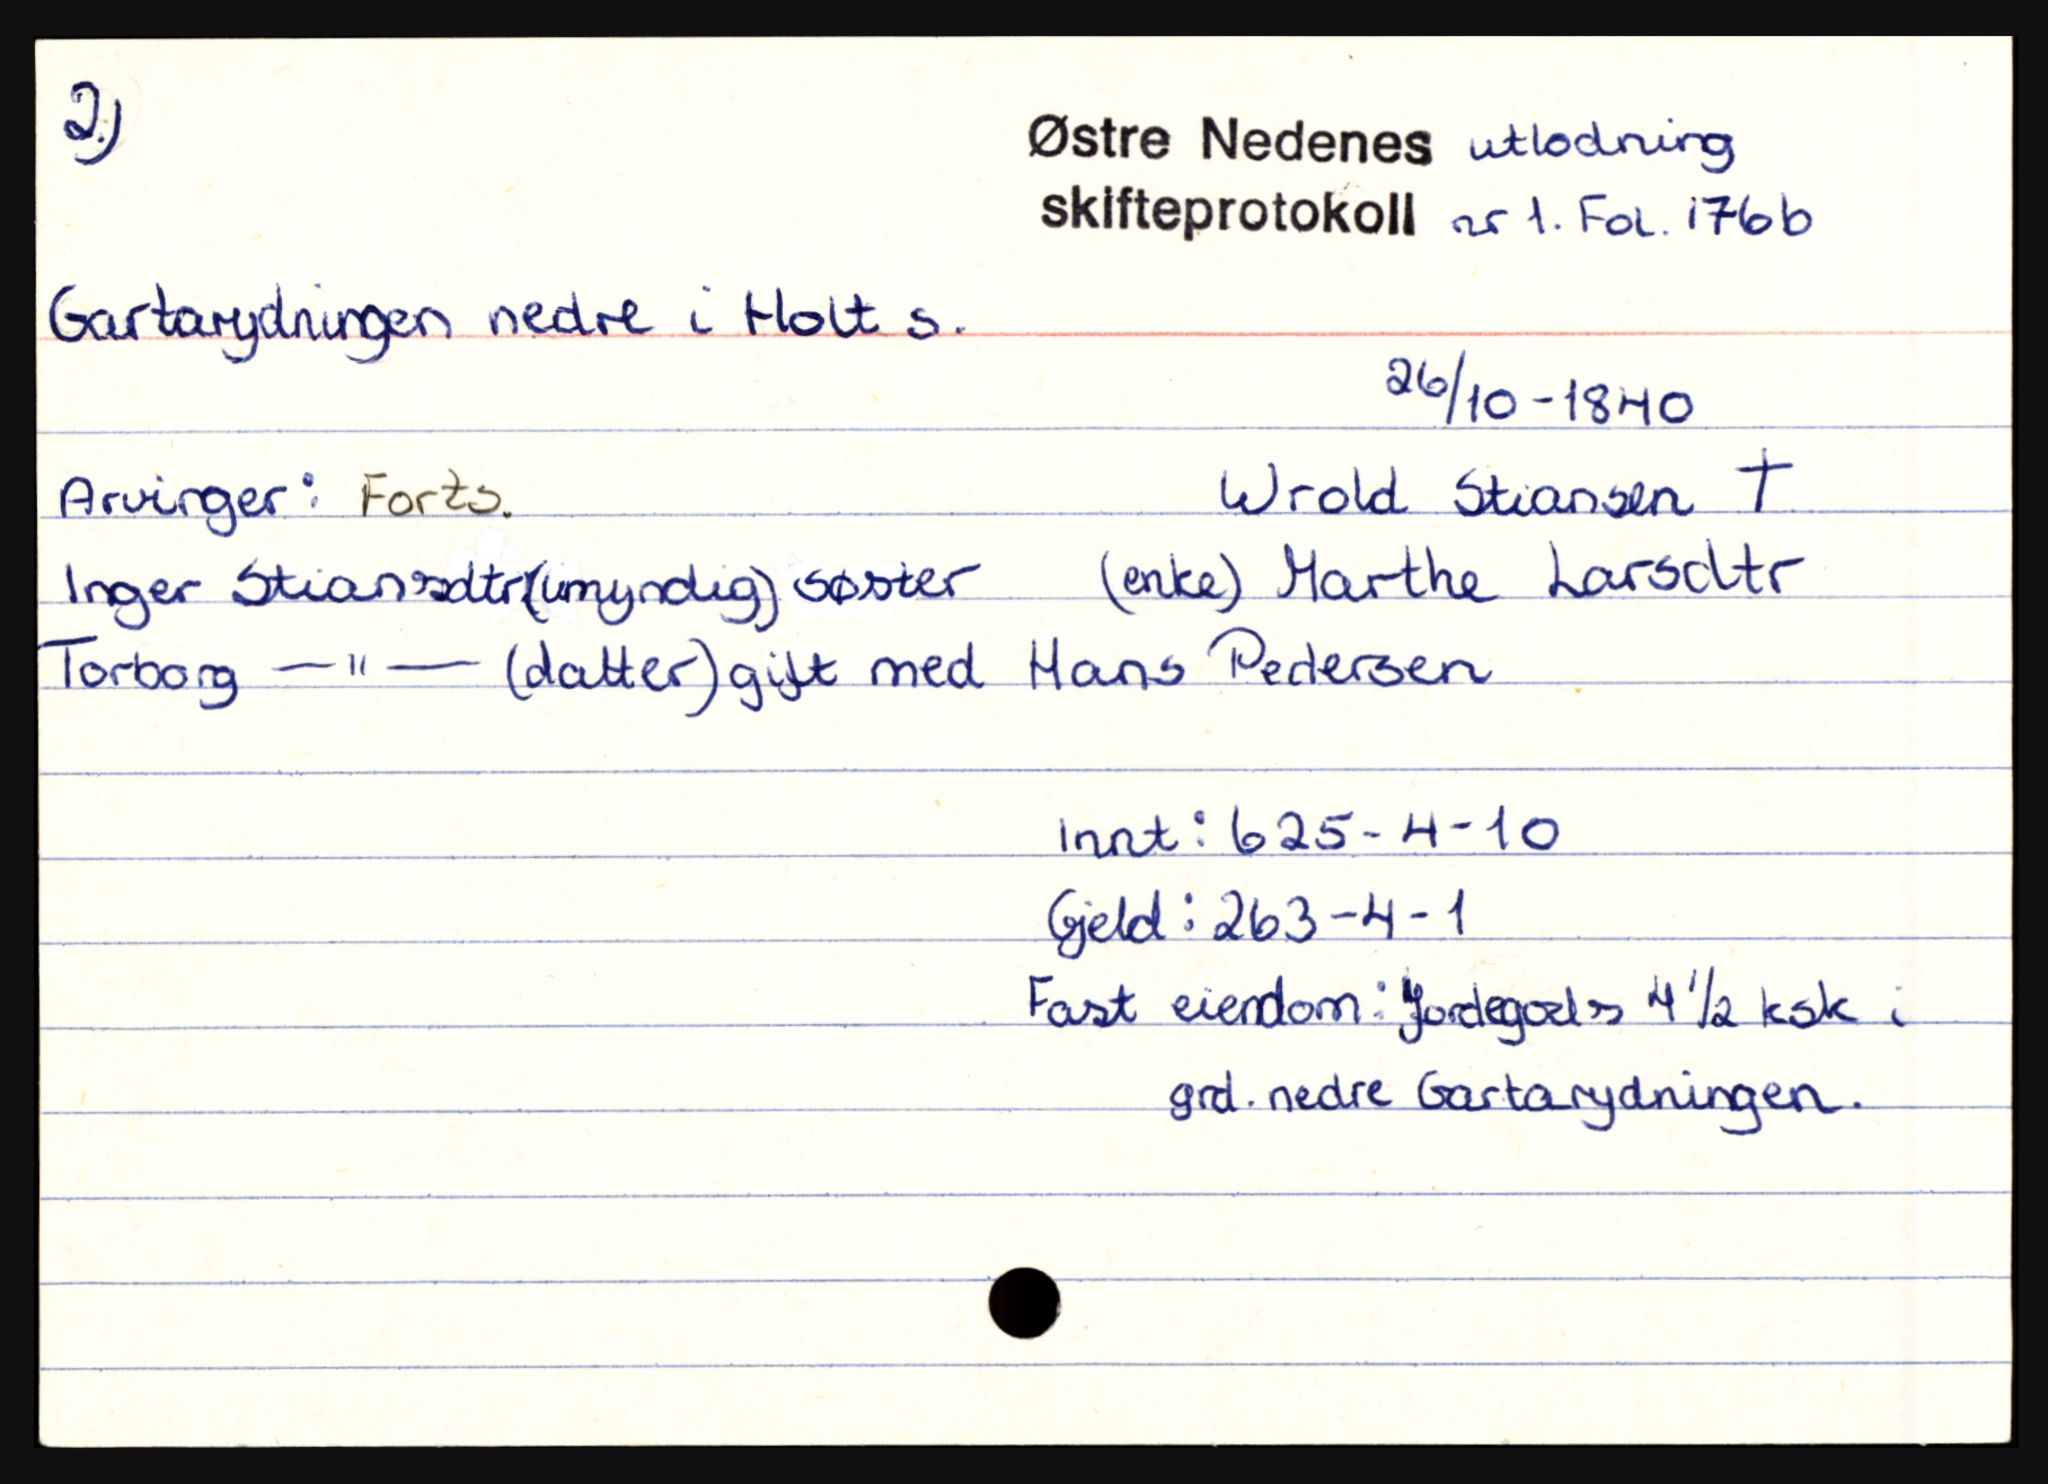 2.)
Østre Nedenes utlodning
skifteprotokoll nr 1. Fol. 176b
Gartarydningen nedre i Holt s.
26/10-1840
Arvinger: Forts. Wrold Stiansen †
Inger Stiansdtr (umyndig) søster (enke) Marthe Larsdtr
Torborg —"— (datter) gift med Hans Pedersen
Innt: 625-4-10
Gjeld: 263-4-1
Fast eiendom: Jordegods 4 1/2 ksk i
grd. nedre Gartarydningen.